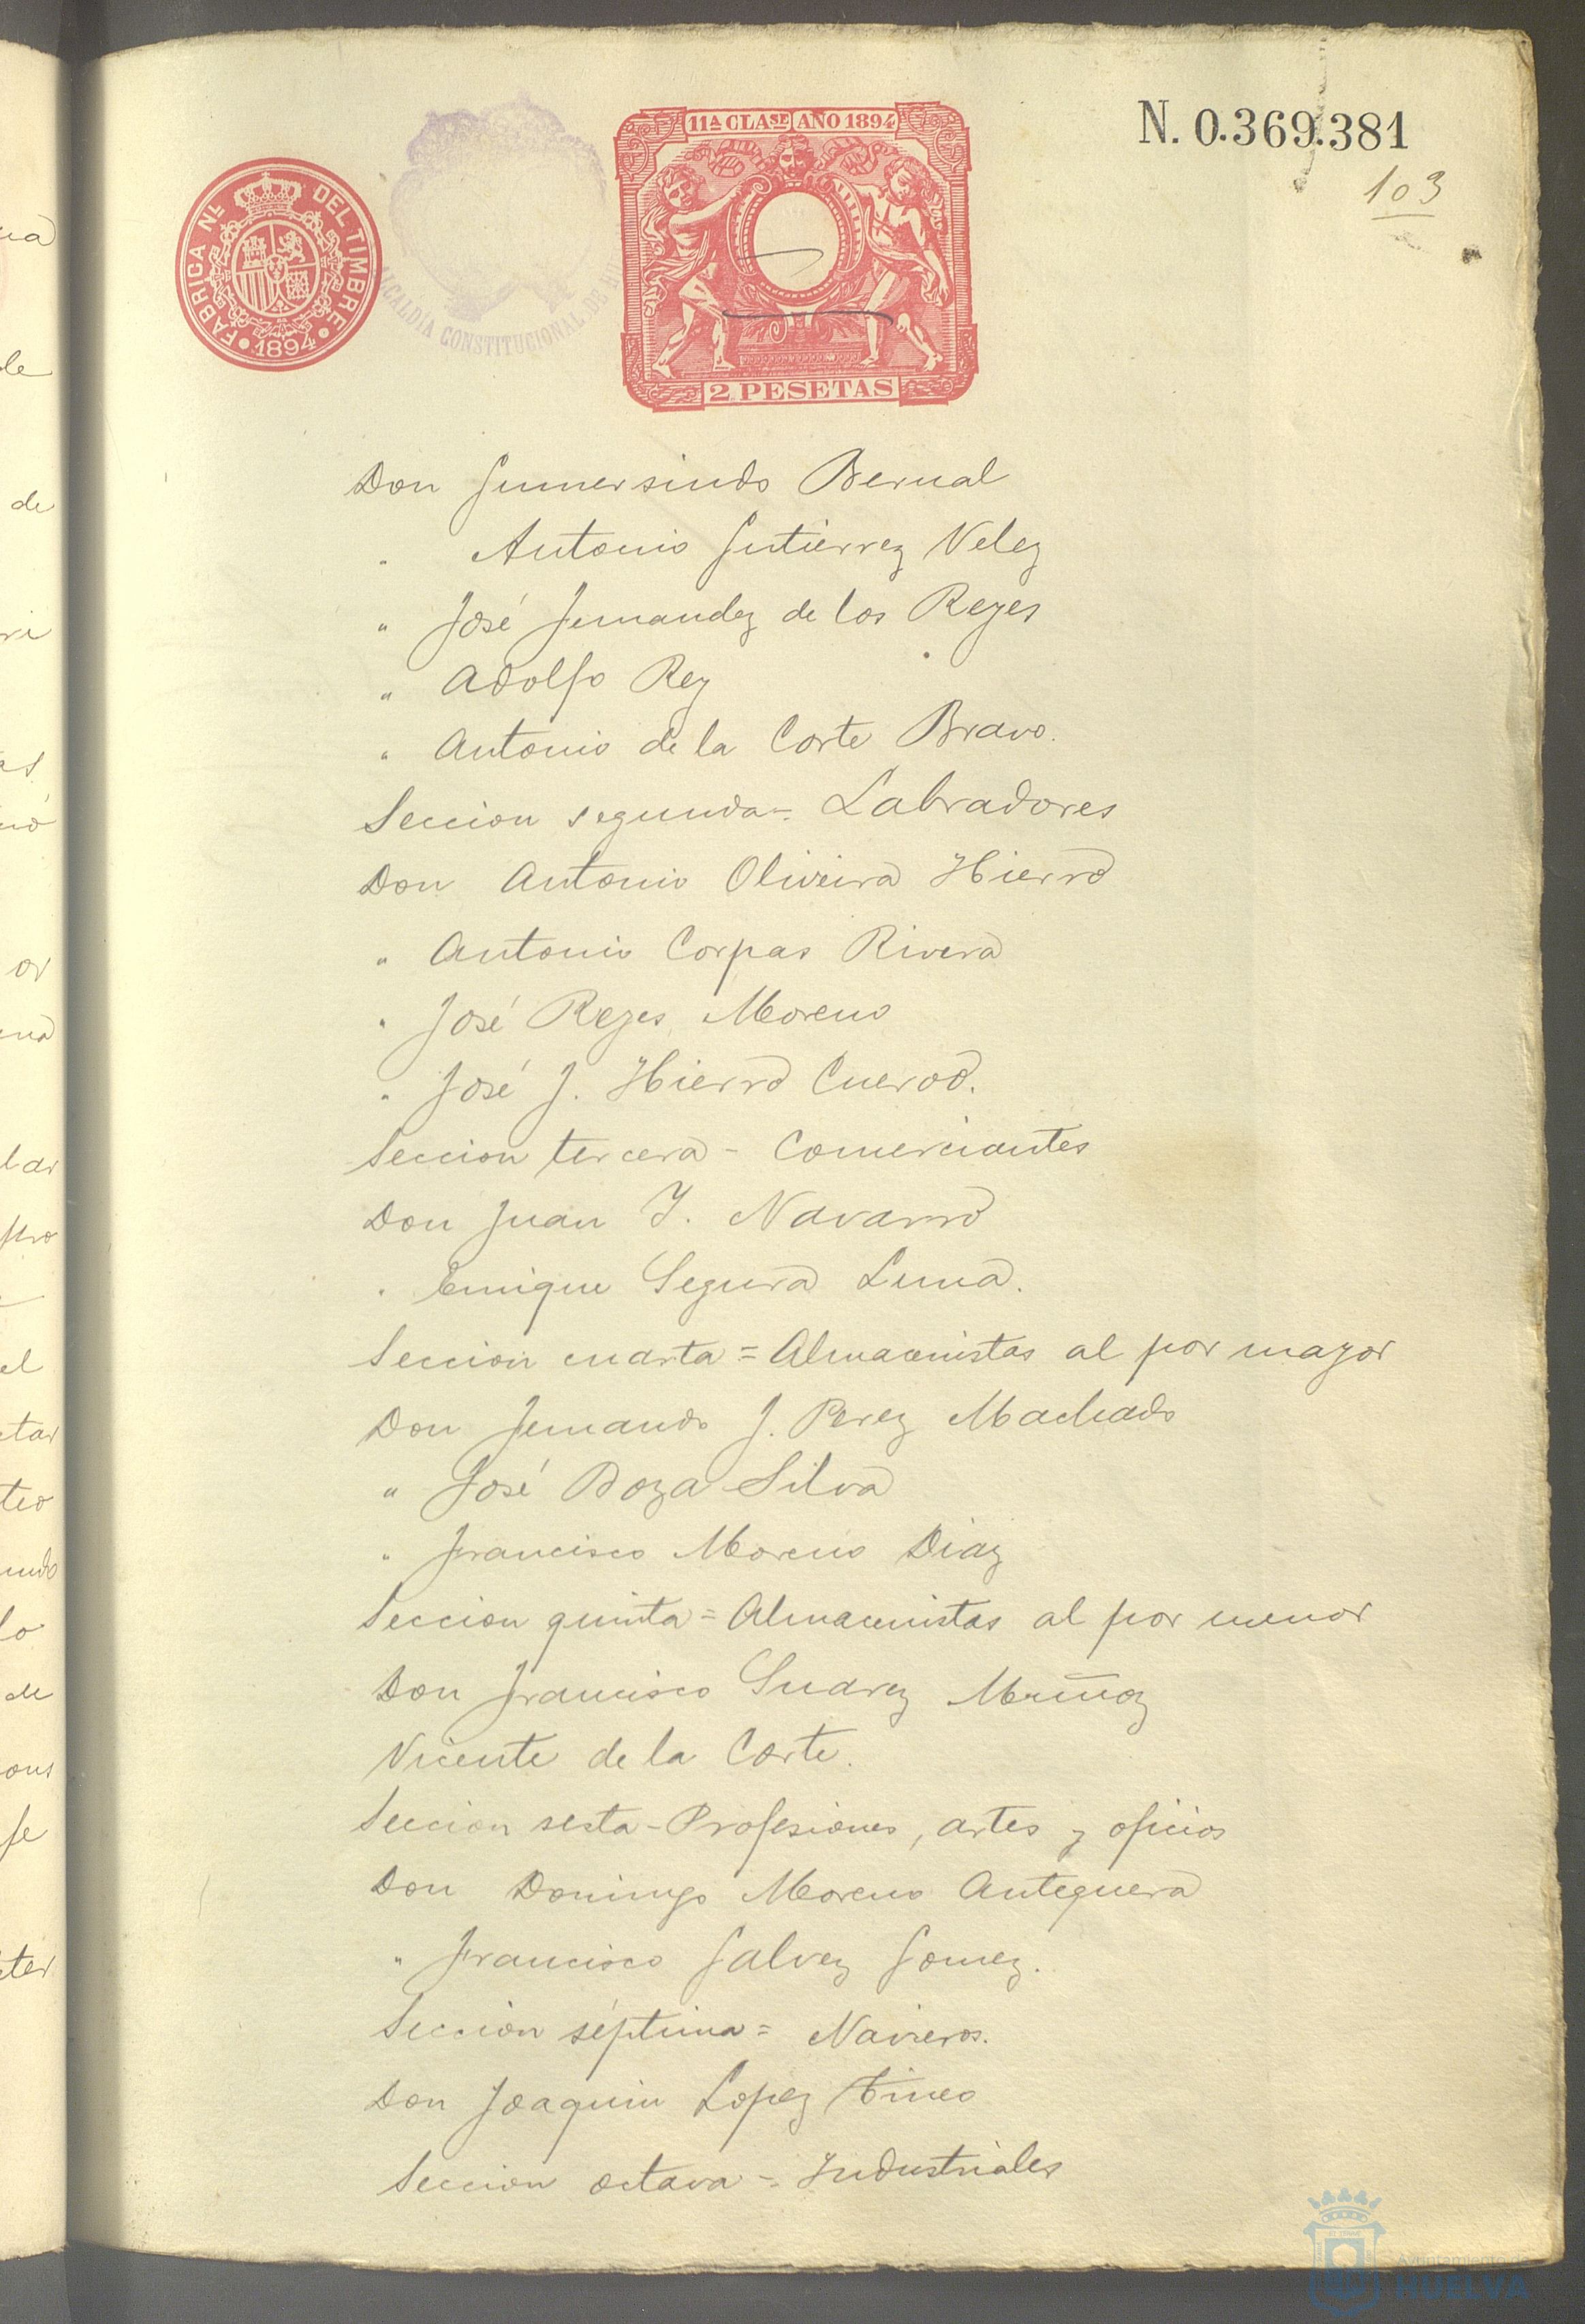 N. 0.369.381
103
FABRICA NL DEL TIMBRE
1894
ALCALDIA CONSTITUCIONAL DE
11A CLASE AÑO 1894
2 PESETAS
Don Gumersindo Bernal
" Antonio Gutierrez Velez
" José Fernandez de los Reyes
" Adolfo Rey
" Antonio de la Corte Bravo.
Seccion segunda = Labradores
Don Antonio Oliveira Hierro
" Antonio Corpas Rivera
" José Reyes Moreno
" José J. Hierro Cuervo.
Seccion tercera - Comerciantes
Don Juan Y. Navarro
" Enrique Segura Luna.
Seccion cuarta = Almacenistas al por mayor
Don Fernando J. Perez Machado
" José Boza Silva
" Francisco Moreno Diaz
Seccion quinta = Almacenistas al por menor
Don Francisco Suarez Muñoz
Vicente de la Corte.
Seccion sesta - Profesiones, artes y oficios
Don Domingo Moreno Antequera
" Francisco Galvez Gomez.
Seccion séptima = Navieros.
Don Joaquin Lopez Tineo
Seccion octava = Industriales
Ayuntamiento
HUELVA